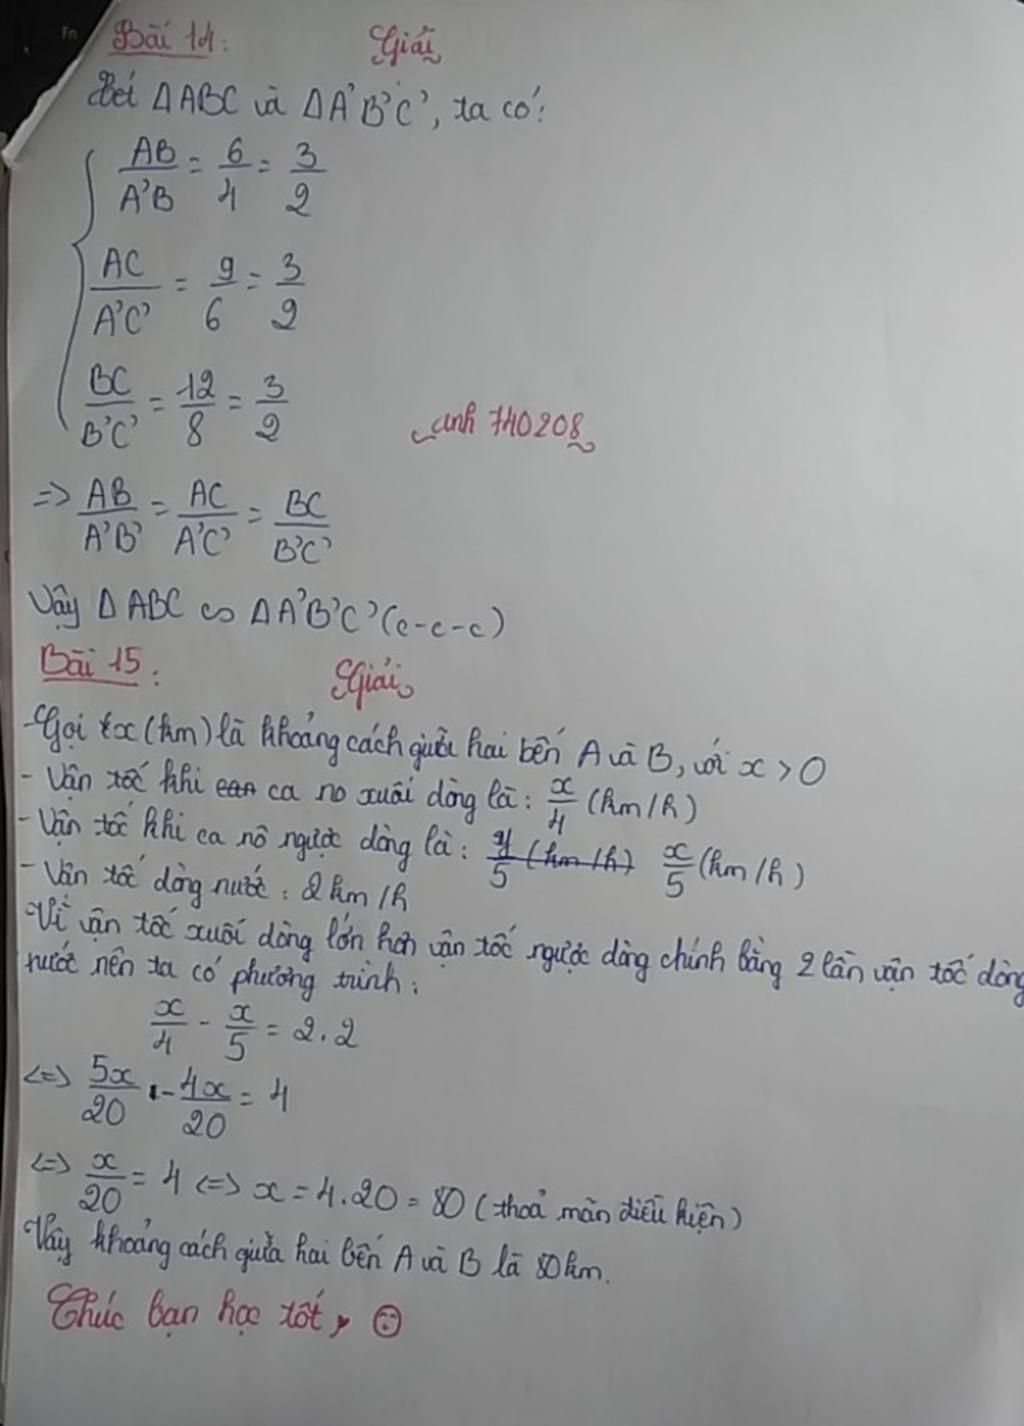 Fn
Bài 14: Giải
Xét ΔABC và ΔA'B'C', ta có:
AB/A'B = 6/4 = 3/2
AC/A'C' = 9/6 = 3/2
BC/B'C' = 12/8 = 3/2
anh 740208
=> AB/A'B' = AC/A'C' = BC/B'C'
Vậy ΔABC ∽ ΔA'B'C' (c-c-c)
Bài 15: Giải
-Gọi x (km) là khoảng cách giữa hai bến A và B, với x > 0
- Vận tốc khi ca no xuôi dòng là: x/4 (km/h)
- Vận tốc khi ca nô ngược dòng là: y/5 (km/h) x/5 (km/h)
- Vận tốc dòng nước: 2km/h
Vì vận tốc xuôi dòng lớn hơn vận tốc ngược dòng chính bằng 2 lần vận tốc dòng
nước nên ta có phương trình:
x/4 - x/5 = 2.2
<=> 5x/20 - 4x/20 = 4
<=> x/20 = 4 <=> x = 4.20 = 80 (thoả mãn điều kiện)
Vậy khoảng cách giữa hai bến A và B là 80km.
Chúc bạn học tốt